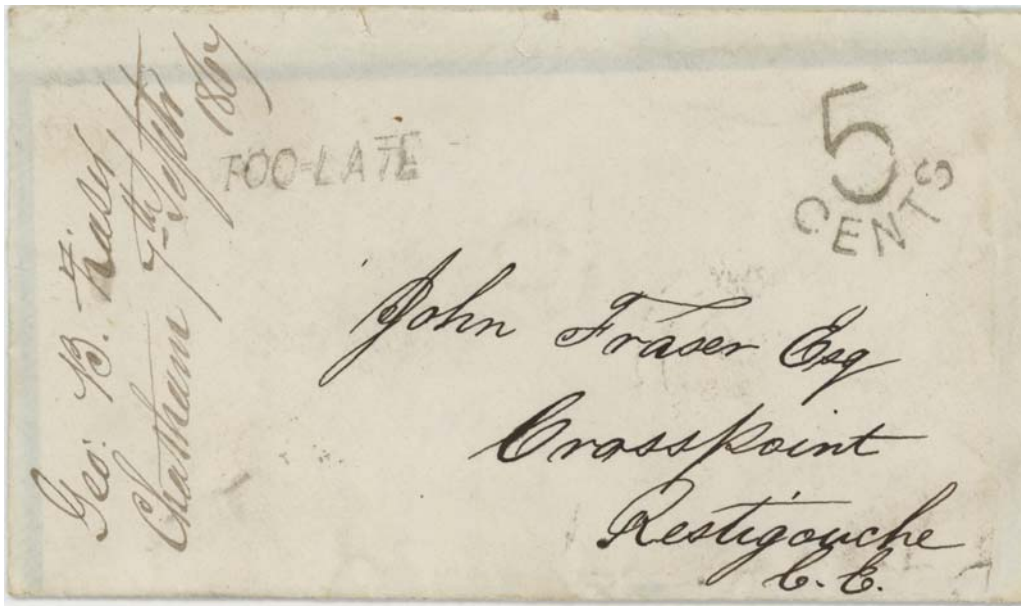 Geo: B. Fraser
Chatham 7th Septr
1867
TOO-LATE
5
CENTS
John Fraser Esq
Crosspoint
Restigouche
C. E.